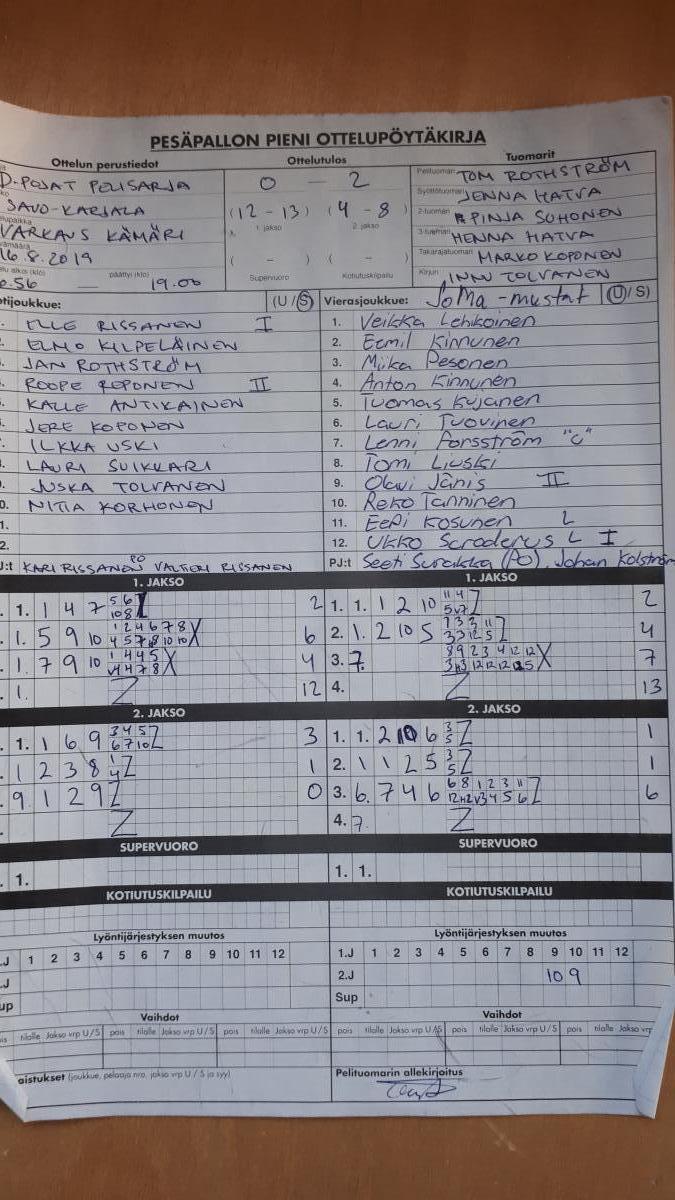 PESÄPALLON PIENI OTTELUPÖYTÄKIRJA
Ottelun perustiedot Ottelutulos Tuomarit
D-POJAT POLISARJA 0 - 2 Pelituomari TOM ROTHSTRÖM
SAVO-KARJALA (12-13) (4-8) Syöttötuomari JENNA HATVA
1. jakso 2. jakso
VARKAUS KÄMÄRI 2-tuomari PINJA SUHONEN
16.8.2019 ( - ) ( - ) 3-tuomari HENNA HATVA
Supervuoro Kotiutuskilpailu Takarajatuomari MARKO KOPONEN
päättyi (klo) 19.00 Kirjuri TOLVANEN
tijoukkue: (U/S) Vierasjoukkue: JoMa-mustat (U/S)
ELLE RISSANEN I 1. Veikka Lehikoinen
ELMO KILPELÄINEN 2. Eemil Kinnunen
JAN ROTHSTRÖM 3. Miika Pesonen
ROOPE ROPONEN II 4. Anton Kinnunen
KALLE ANTIKAINEN 5. Tuomas Kujanen
JERE KOPONEN 6. Lauri Tuovinen
ILKKA USKI 7. Lenni Forsström "C"
LAURI SUIKKARI 8. Tomi Liuski
JUSKA TOLVANEN 9. Olavi Jänis II
NITIA KORHONEN 10. Reko Tanninen
1. 11. Eepi Kosunen L
2. 12. Ukko Scroderus L I
J:t KARI RISSANEN PO VALTTERI RISSANEN PJ:t Seeti Surakka (PO), Johan Kolström
1. JAKSO 1. JAKSO
1. 1 4 7 5 6 10 8 Z 2 1. 1. 1 2 10 11 4 5 7 Z 2
1. 5 9 10 1 2 4 6 7 8 X 6 2. 1. 2 10 5 Z 4
1. 7 9 10 1 4 4 5 4 4 7 8 X 4 3. 7. 8 9 2 3 4 12 12 X 7
1. Z 12 4. Z 13
2. JAKSO 2. JAKSO
1. 1 6 9 3 4 5 6 7 10 Z 3 1. 1. 2 10 6 3 5 Z 1
1 2 3 8 1 4 Z 1 2. 1 1 2 5 3 5 Z 1
9 1 2 9 Z 0 3. 6. 7 4 6 6 8 1 2 3 11 Z 6
Z 4. 7. Z
SUPERVUORO SUPERVUORO
1. 1. 1.
KOTIUTUSKILPAILU KOTIUTUSKILPAILU
Lyöntijärjestyksen muutos Lyöntijärjestyksen muutos
.J 1 2 3 4 5 6 7 8 9 10 11 12 1.J 1 2 3 4 5 6 7 8 9 10 11 12
.J 2.J 10 9
up Sup
Vaihdot Vaihdot
ois tilalle Jakso vrp U/S pois tilalle Jakso vrp U/S pois tilalle Jakso vrp U/S pois tilalle Jakso vrp U/S pois tilalle Jakso vrp
aistukset (joukkue, pelaaja nro, jakso vrp U / S ja syy) Pelituomarin allekirjoitus